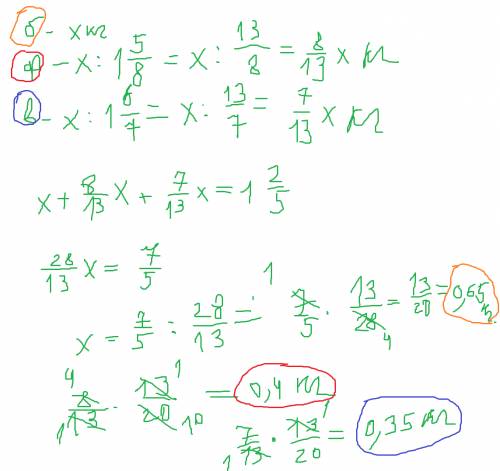 б - x кг
ф - x : 1 5/8 = x : 13/8 = 8/13 x кг
в - x : 1 6/7 = x : 13/7 = 7/13 x кг
x + 8/13 x + 7/13 x = 1 2/5
28/13 x = 7/5
x = 7/5 : 28/13 = 1 7/5 · 13/28 4 = 13/20 = 0,65
4 8/13 1 · 13/20 1 10 = 0,4 кг
1 7/13 · 13/20 1 = 0,35 кг